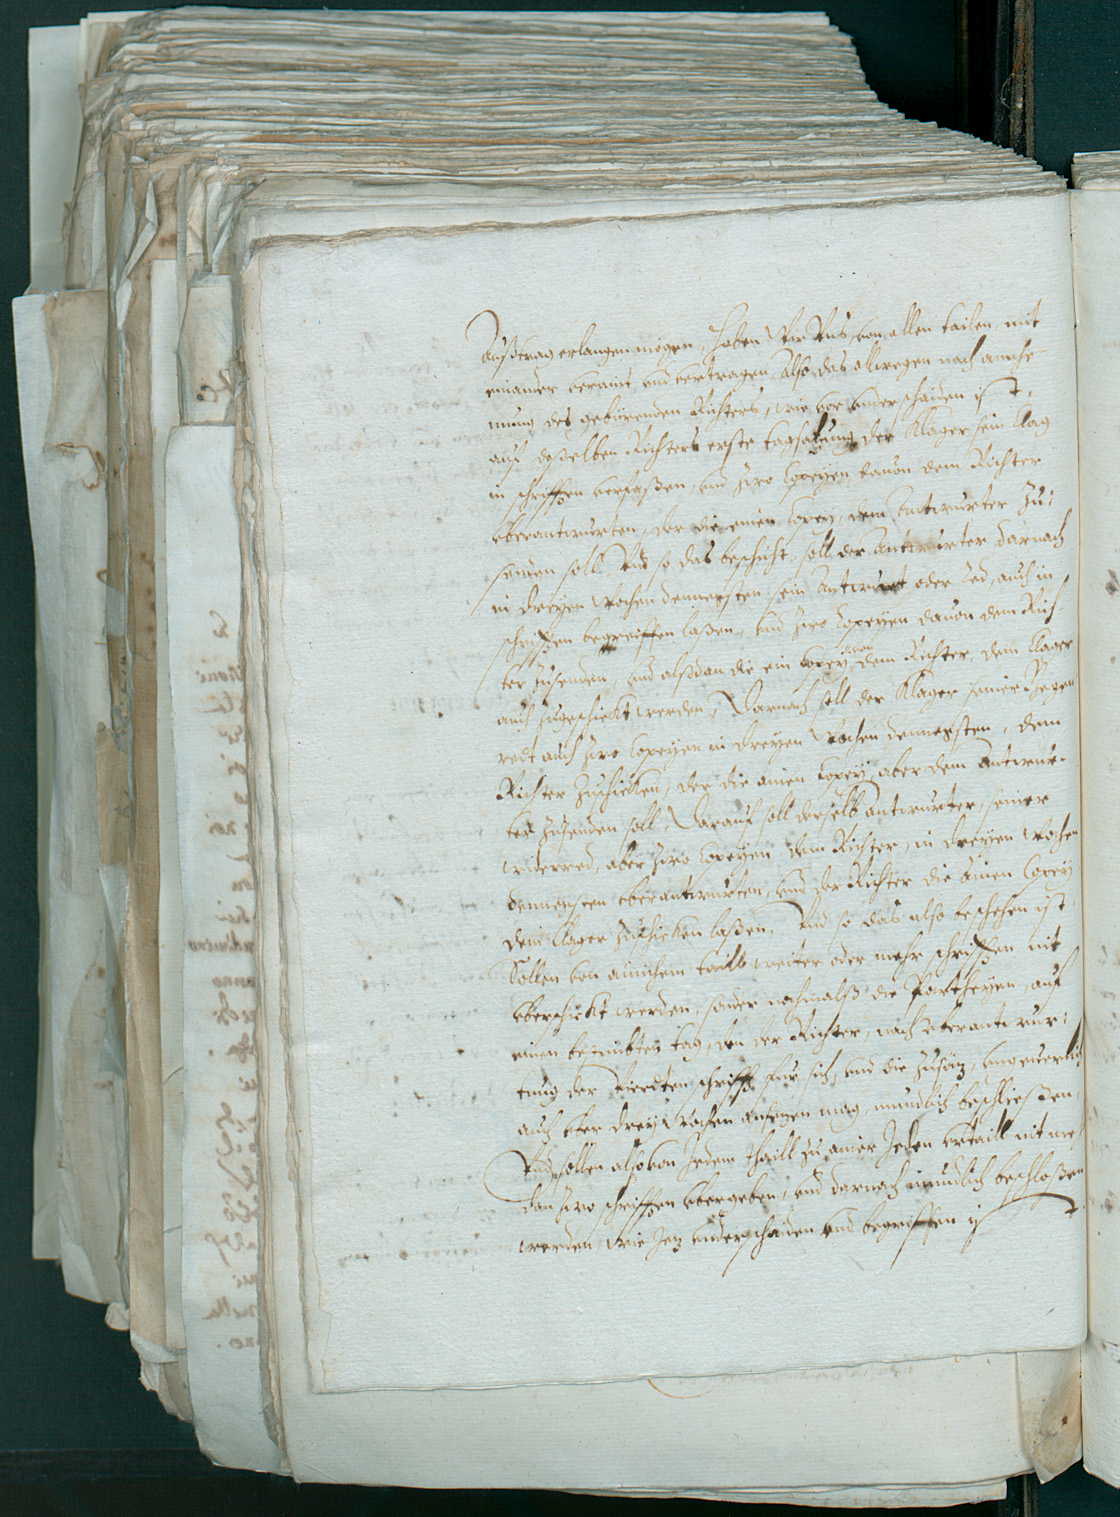 Außtrag erlangen mögen, Haben Wir Vns, von allen tailen, mit
einander veraint, vnd vertragen, Also das allwegen nach anrüe-
nung des gebürenden Richters, wie vor vnderschaiden ist,
auf desselben Richters erste tagsatzung der Klager sein klag
in schrifften verfaßen, vnd zwo Copeyen dauon dem Richter
vberantwurten, der die einen Copey, dem Antwurter zu-
senden soll. Vnd so das beschicht, soll der Antwurter darnach
in dreyen Wochen dennegsten sein Antwurt oder red, auch in
schrifften begreiffen laßen, vnd zwo Copeyen dauon dem Rich-
ter zusenden, vnd alßdan die ein Copey von dem Richter, dem klager
auch zugeschickt werden, Darnach soll der Klager seiner Gegen
redt auch zwo Copeyen in dreyen Wochen dennegsten, dem
Richter zuschicken, der die ainen Copey, aber dem Antwur-
ter zusenden soll, Darauf soll derselb Antwurter, seiner
widerred, aber zwo Copeyen dem Richter, in dreyen Wochen
dennegsten vberantwurten, vnd der Richter die ainen Copey
dem klager zuschicken laßen, Vnd so das also beschehen ist,
Sollen von ainichem taill weiter oder mehr schrifften nit
vberschickt werden, sonder nochmalß die Partheyen, auf
einen bestimbten tag, den der Richter, nach vberantwur-
tung der Vierdten schrifft für sich, vnd die zusätz, vngeuerlich
auch vber drey Wochen ansetzen mag, mundlich beschließen,
Vnd sollen also von Jedem thaill zu ainer Jeden vrtaill nit me
dan zwo schrifften vbergeben, vnd darnach mündlich beschloßen
werden, wie Jetz vnderschaiden vnd begriffen ist